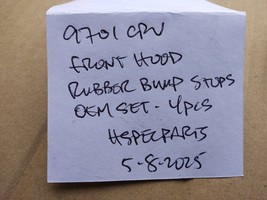 9701 CPV
FRONT HOOD
RUBBER BUMP STOPS
OEM SET - 4pcs
HSPECPARTS
5-8-2025